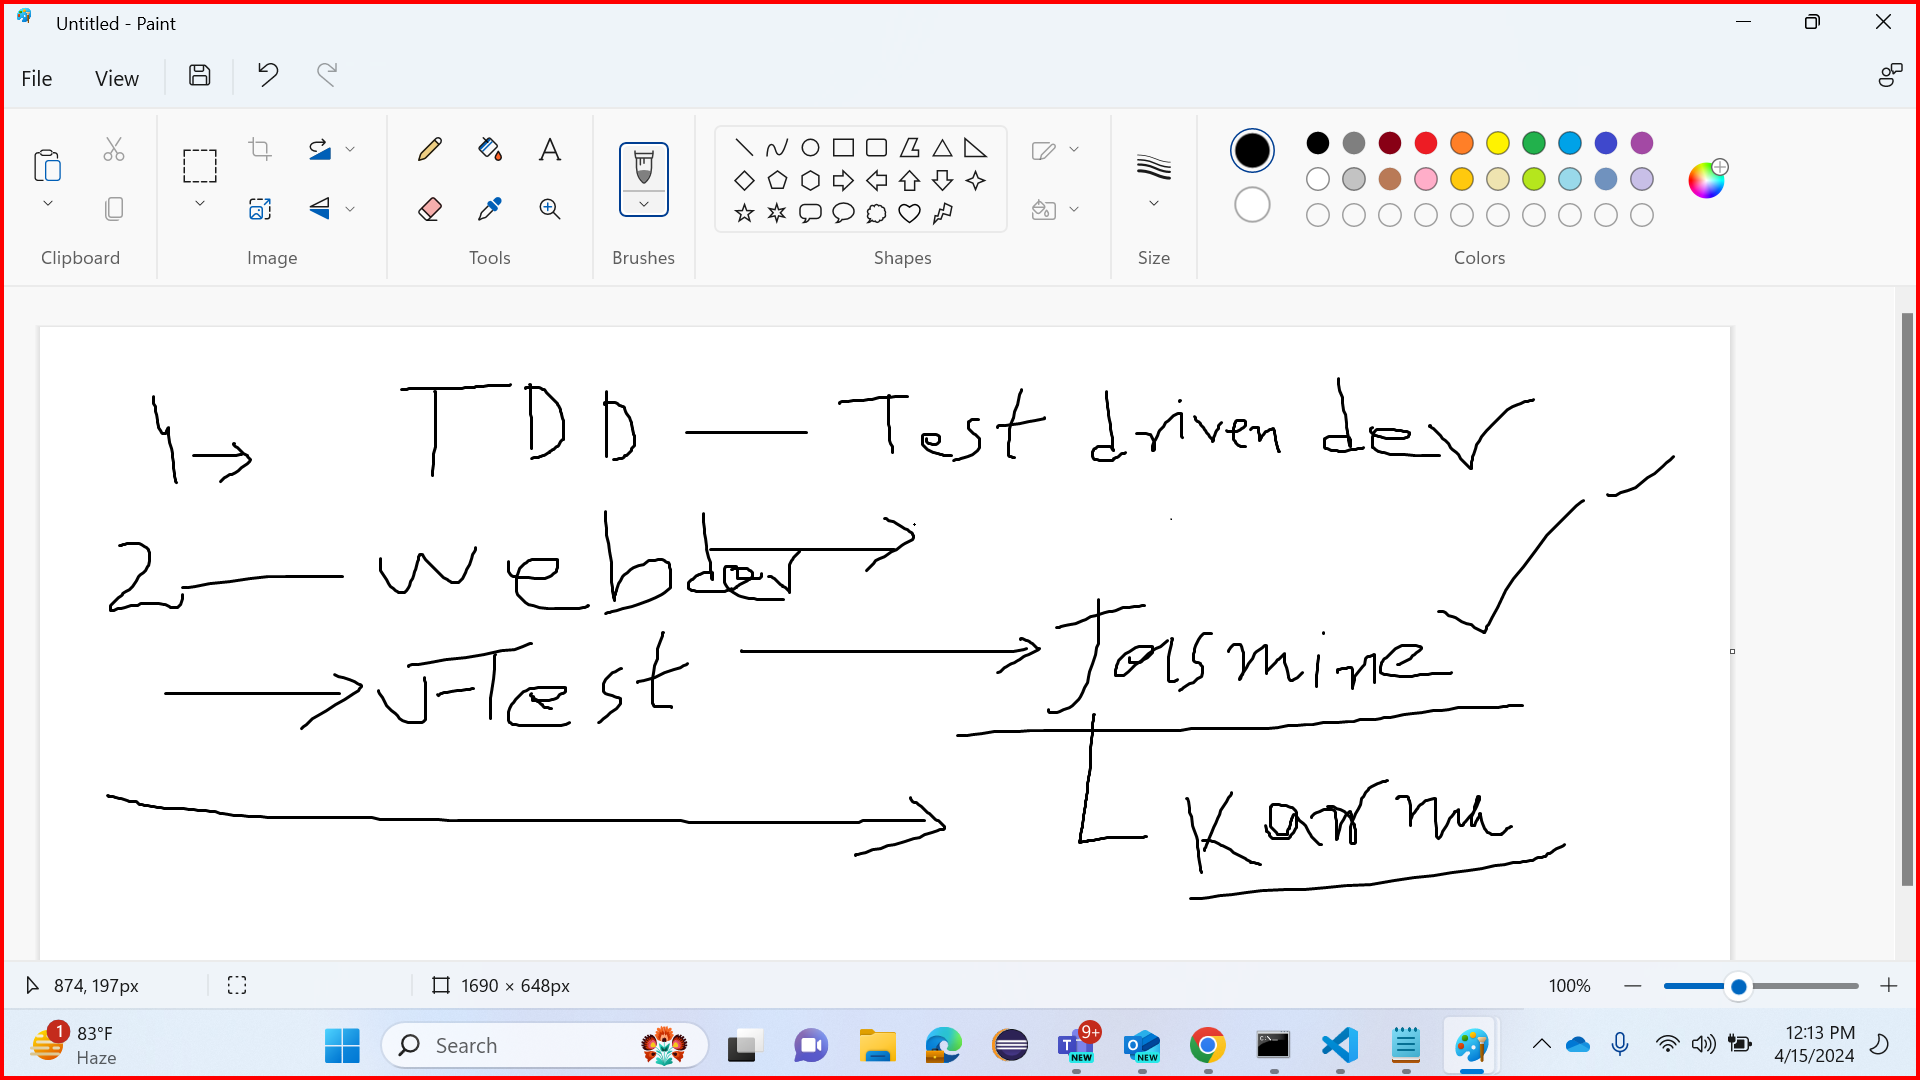 Untitled - Paint
File View
Clipboard Image Tools Brushes Shapes Size Colors
1 → TDD — Test driven dev
2 — web dev →
→ Test → Jasmine
→ Karma
874, 197px 1690 × 648px 100%
1 83°F Haze Search 9+ NEW NEW 12:13 PM 4/15/2024